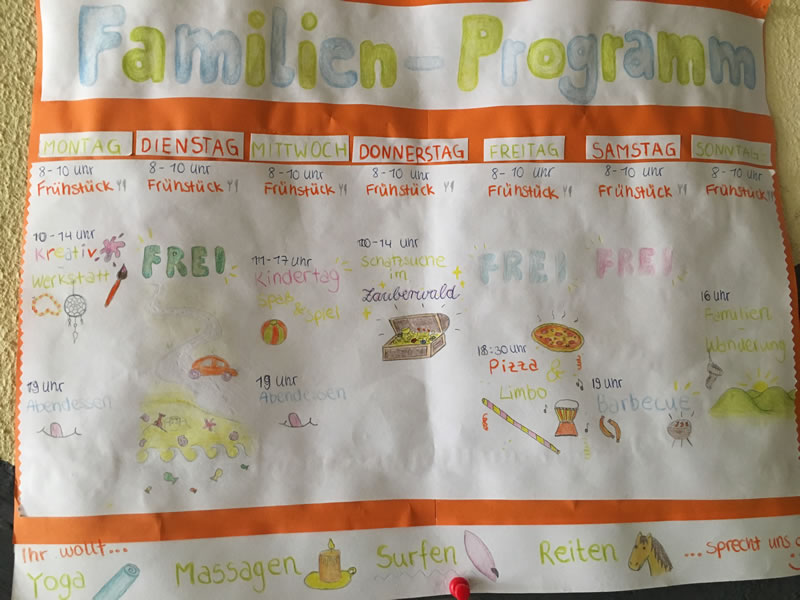 Familien-Programm
MONTAG DIENSTAG MITTWOCH DONNERSTAG FREITAG SAMSTAG SONNTAG
8-10 Uhr
Frühstück
10-14 Uhr
Kreativ
Werkstatt
19 Uhr
Abendessen
8-10 Uhr
Frühstück
FREI
8-10 Uhr
Frühstück
11-17 Uhr
Kindertag
Spaß
& Spiel
19 Uhr
Abendessen
8-10 Uhr
Frühstück
10-14 Uhr
Schatzsuche
im
Zauberwald
8-10 Uhr
Frühstück
FREI
18:30 Uhr
Pizza
&
Limbo
8-10 Uhr
Frühstück
FREI
19 Uhr
Barbecue
8-10 Uhr
Frühstück
16 Uhr
Familien
Wanderung
Ihr wollt...
Yoga Massagen Surfen Reiten ...sprecht uns